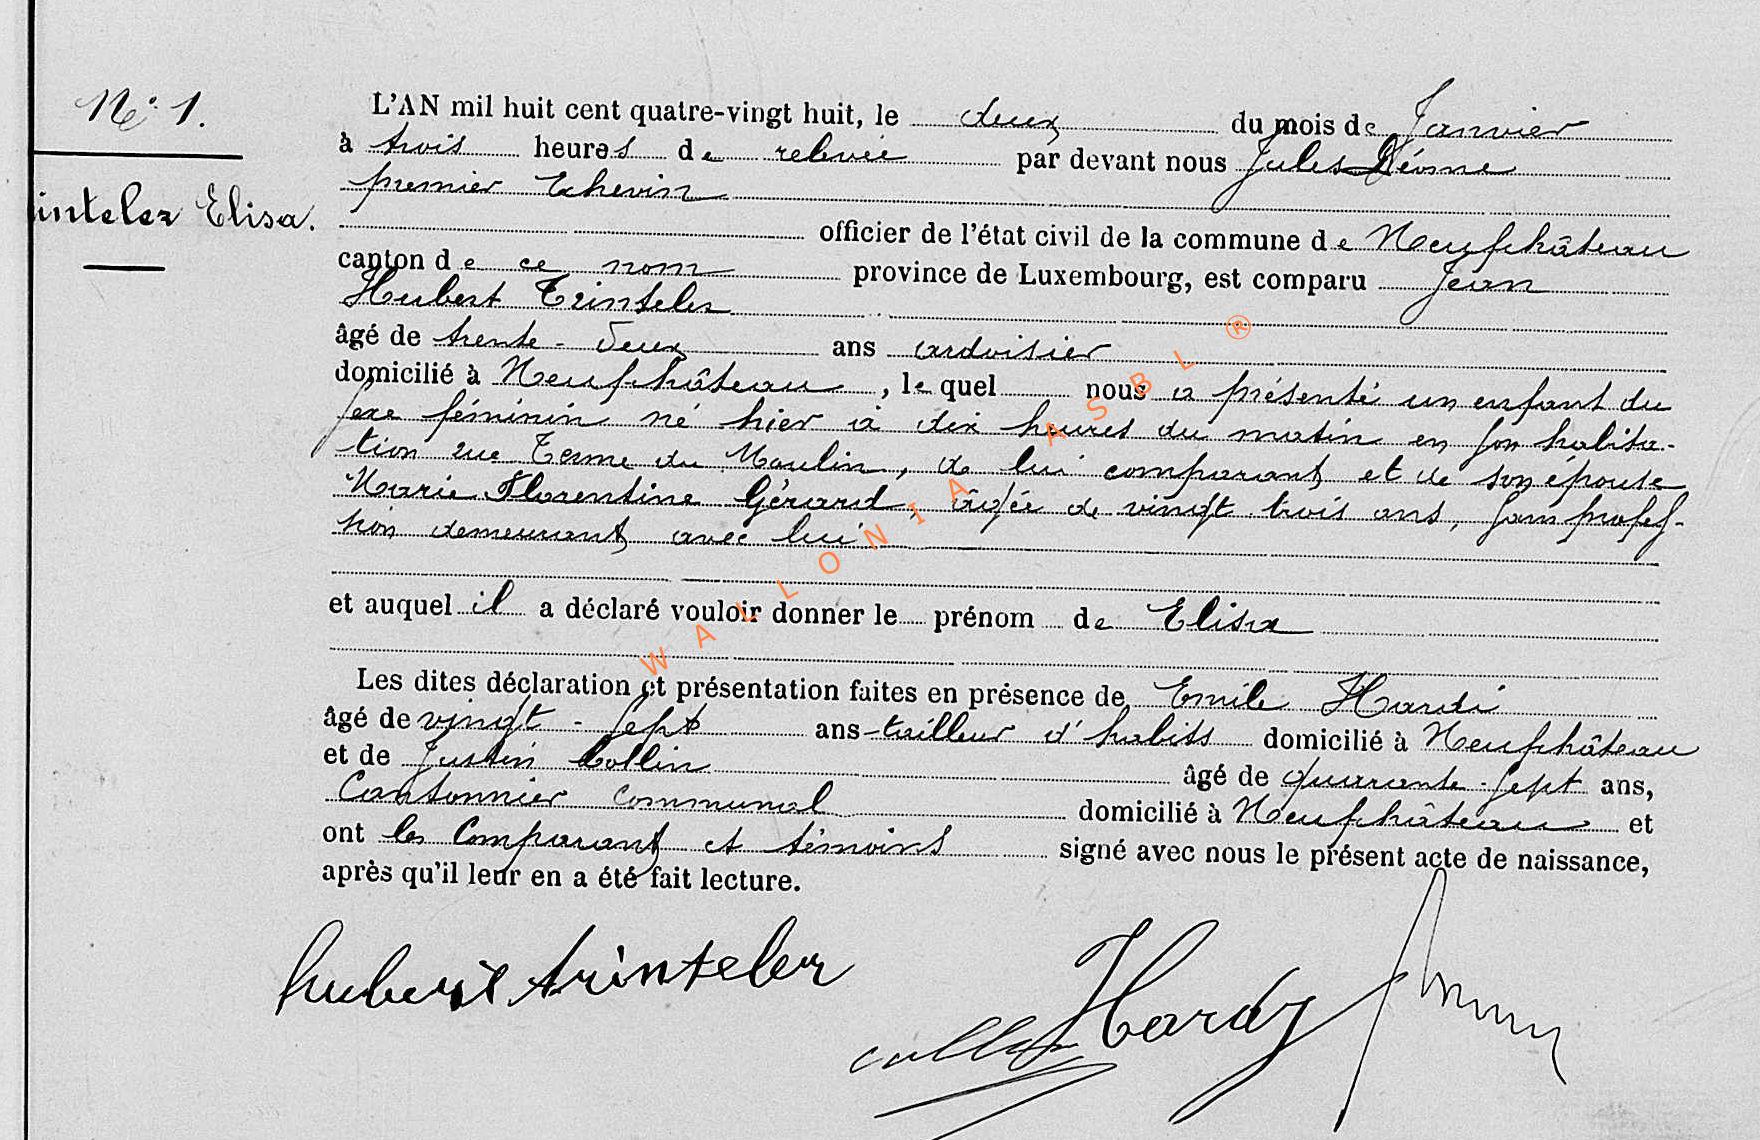 N° 1.
inteler Elisa.
L'AN mil huit cent quatre-vingt huit, le deux du mois de Janvier
à trois heures de relevée par devant nous Jules
premier Echevin
officier de l'état civil de la commune de Neufchâteau
canton de ce nom province de Luxembourg, est comparu Jean
Hubert Trinteler
âgé de trente-deux ans ardoisier
domicilié à Neufchâteau, lequel nous a présenté un enfant du
sexe féminin né hier à dix heures du matin en son habita-
tion rue Terme du Moulin, de lui comparant et de son épouse
Marie Florentine Gérard, âgée de vingt trois ans, sans profes-
sion demeurant avec lui
et auquel il a déclaré vouloir donner le prénom de Elisa
Les dites déclaration et présentation faites en présence de Emile Hardi
âgé de vingt-sept ans tailleur d'habits domicilié à Neufchâteau
et de Justin Collin âgé de quarante-sept ans,
Cantonnier communal domicilié à Neufchâteau et
ont les Comparant et témoins signé avec nous le présent acte de naissance,
après qu'il leur en a été fait lecture.
hubert trinteler
Hardy
collin
WALLONIA ASBL ®